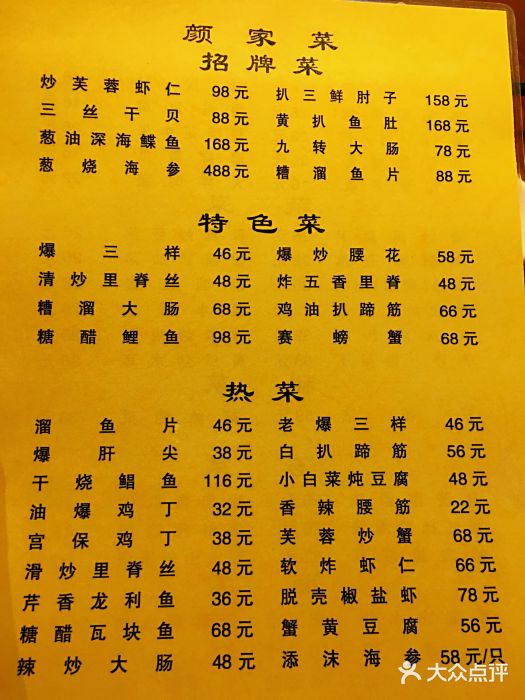 颜家菜
招牌菜
炒芙蓉虾仁 98元 扒三鲜肘子 158元
三丝干贝 88元 黄扒鱼肚 168元
葱油深海鲽鱼 168元 九转大肠 78元
葱烧海参 488元 糟溜鱼片 88元
特色菜
爆三样 46元 爆炒腰花 58元
清炒里脊丝 48元 炸五香里脊 48元
糟溜大肠 68元 鸡油扒蹄筋 66元
糖醋鲤鱼 98元 赛螃蟹 68元
热菜
溜鱼片 46元 老爆三样 46元
爆肝尖 38元 白扒蹄筋 56元
干烧鲳鱼 116元 小白菜炖豆腐 48元
油爆鸡丁 32元 香辣腰筋 22元
宫保鸡丁 38元 芙蓉炒蟹 68元
滑炒里脊丝 48元 软炸虾仁 66元
芹香龙利鱼 36元 脱壳椒盐虾 78元
糖醋瓦块鱼 68元 蟹黄豆腐 56元
辣炒大肠 48元 添沫海参 58元/只
大众点评